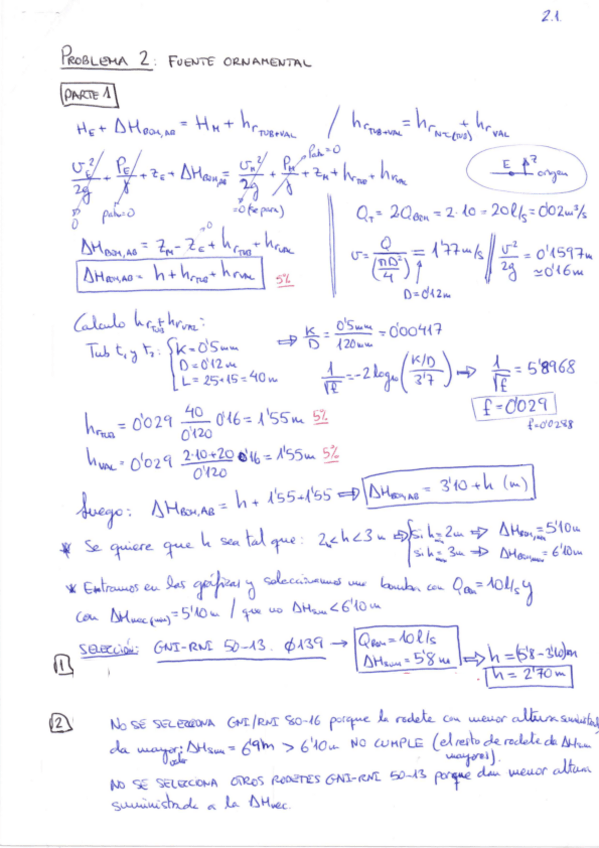 2.1.
PROBLEMA 2: FUENTE ORNAMENTAL
PARTE 1
H_E + ΔH_BOM,AB = H_M + hr_TUB+VAL / hr_TUB+VAL = hr_NT(TUB) + hr_VAL
v_E²/2g + P_E/γ + z_E + ΔH_BOM,AB = v_M²/2g + P_M/γ + z_M + hr_TUB + hr_VAL
Patm=0
0
patm=0
=0 (se para)
E z origen
Q_T = 2Q_BOM = 2·10 = 20 l/s = 0'02 m³/s
ΔH_BOM,AB = z_M - z_E + hr_TUB + hr_VAL
0
v = Q/(πD²/4) = 1'77 m/s // v²/2g = 0'1597 m ≃ 0'16 m
D=0'12 m
ΔH_BOM,AB = h + hr_TUB + hr_VAL 5%
Calculo hr_TUB + hr_VAL:
Tub t₁ y t₂: { K=0'5 mm
D=0'12 m
L = 25+15 = 40 m
⇒ K/D = 0'5mm/120mm = 0'00417
1/√f = -2 log₁₀ ((K/D)/3'7) ⇒ 1/√f = 5'8968
f = 0'029
f=0'0288
hr_TUB = 0'029 40/0'120 0'16 = 1'55 m 5%
hr_VAL = 0'029 (2·10+20)/0'120 0'16 = 1'55 m 5%
Luego: ΔH_BOM,AB = h + 1'55 + 1'55 ⇒ ΔH_BOM,AB = 3'10 + h (m)
* Se quiere que h sea tal que: 2m < h < 3 m ⇒ { si h = 2m ⇒ ΔH_BOM,min = 5'10 m
si h = 3m ⇒ ΔH_BOM,max = 6'10 m
* Entramos en las gráficas y seleccionamos una bomba con Q_BOM = 10 l/s y
con ΔH_nec(min) = 5'10 m / que no ΔH_sum < 6'10 m
1 SELECCIÓN: GNI-RNI 50-13. Ø139 → Q_BOM = 10 l/s
ΔH_sum = 5'8 m
⇒ h = (5'8 - 3'10) m
h = 2'70 m
2 NO SE SELECCIONA GNI/RNI 80-16 porque le rodete con menor altura suministra
da mayor: ΔH_sum = 6'9m > 6'10 m NO CUMPLE (el resto de rodete da ΔH_sum
mayores).
NO SE SELECCIONA OTROS RODETES GNI-RNI 50-13 porque dan menor altura
suministrada a la ΔH_nec.